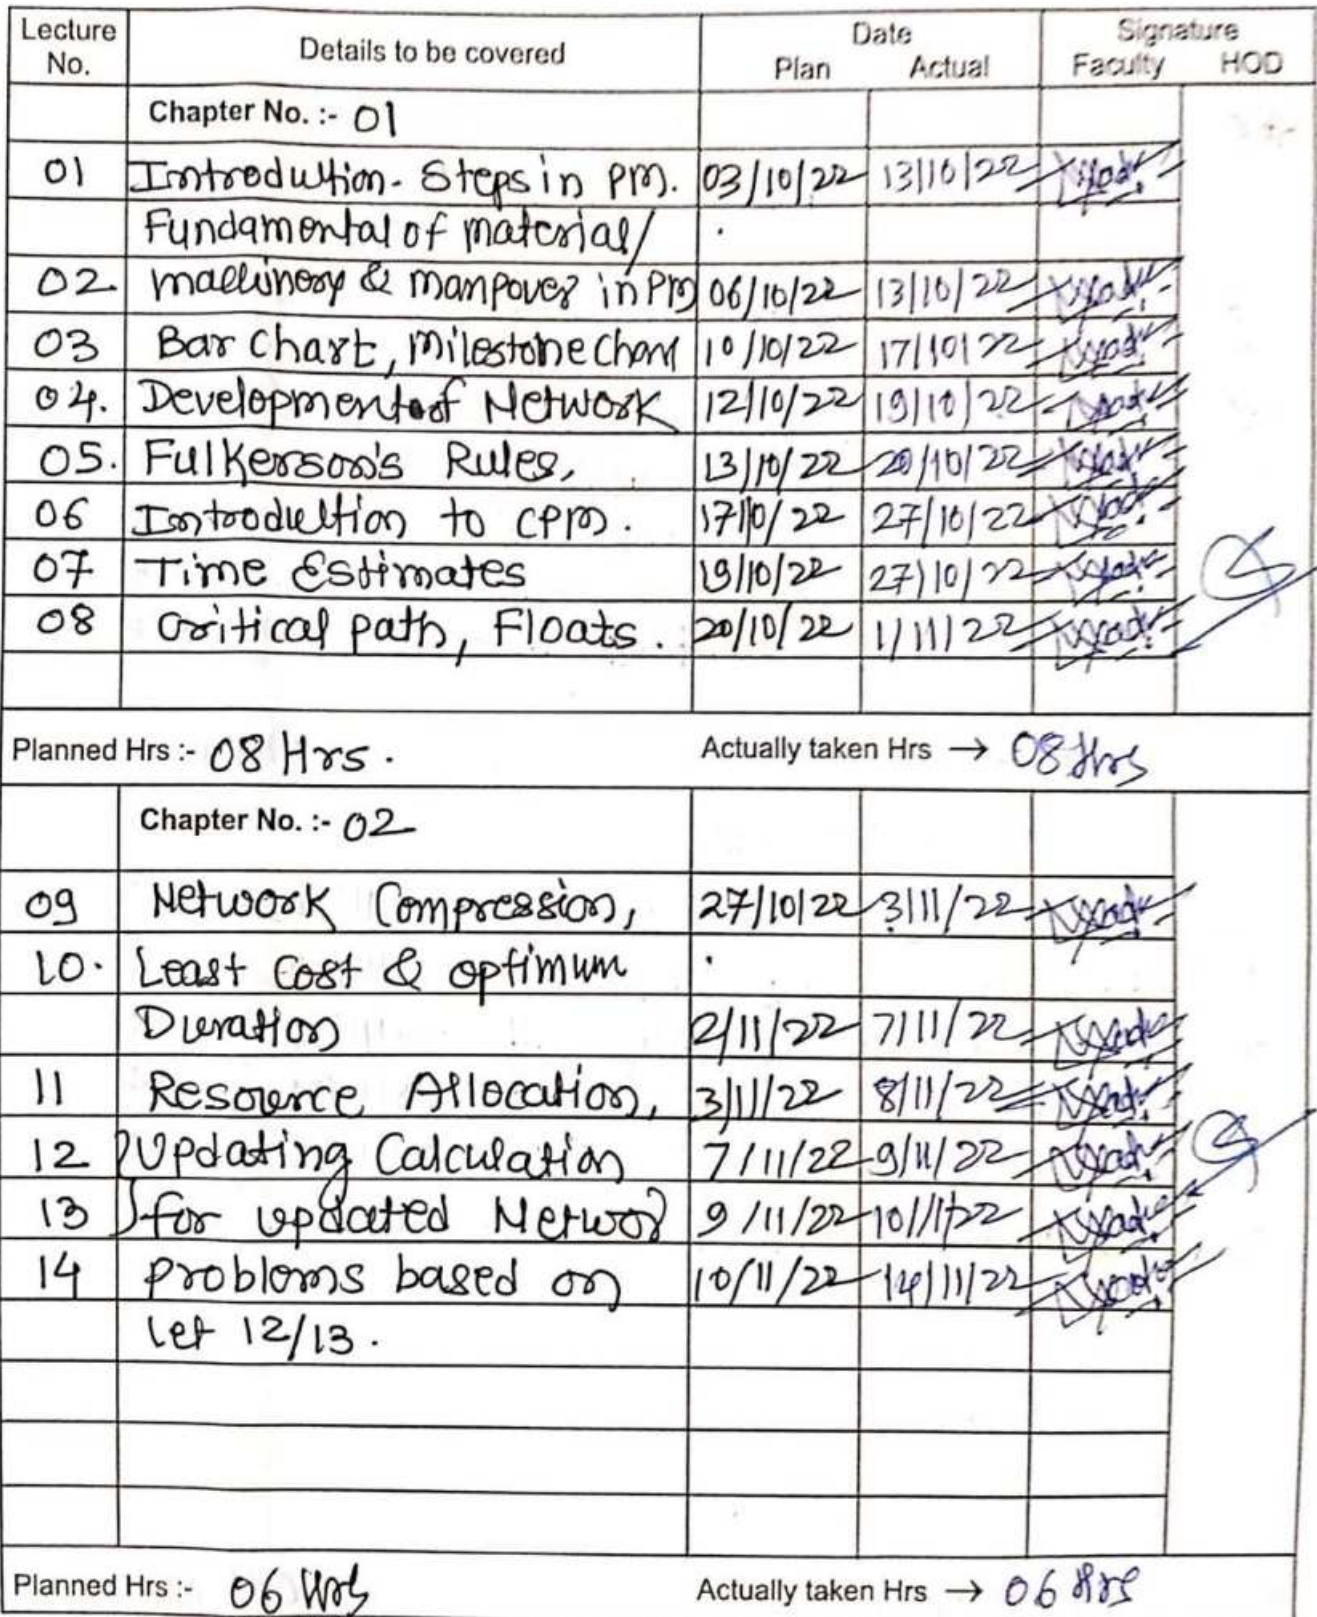 Lecture No. Details to be covered Date Plan Actual Signature Faculty HOD
Chapter No. :- 01
01 Introduction. Steps in PM. 03/10/22 13/10/22
Fundamental of material/
02. machinery & manpover in PM 06/10/22 13/10/22
03 Bar Chart, Milestone Chart 10/10/22 17/10/22
04. Development of Network 12/10/22 19/10/22
05. Fulkerson's Rules, 13/10/22 20/10/22
06 Introduction to CPM. 17/10/22 27/10/22
07 Time Estimates 19/10/22 27/10/22
08 Critical path, Floats. 20/10/22 1/11/22
Planned Hrs :- 08 Hrs. Actually taken Hrs → 08 Hrs
Chapter No. :- 02
09 Network Compression, 27/10/22 3/11/22
10. Least Cost & optimum
Duration 2/11/22 7/11/22
11 Resource Allocation, 3/11/22 8/11/22
12 Updating Calculation 7/11/22 9/11/22
13 for updated Networ 9/11/22 10/11/22
14 problems based on 10/11/22 14/11/22
Let 12/13.
Planned Hrs :- 06 Hrs Actually taken Hrs → 06 Hrs